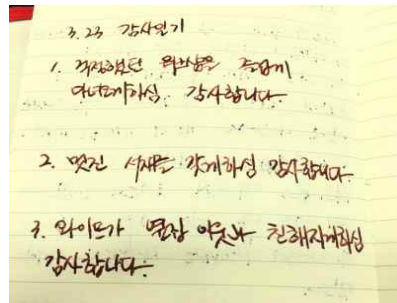 3.23 감사일기
1. 걱정했던 즐겁게
다녀오게하심 감사합니다.
2. 멋진 서재를 갖게하심 감사합니다.
3. 와이프가 옆집 이웃과 친해지게하심
감사합니다.